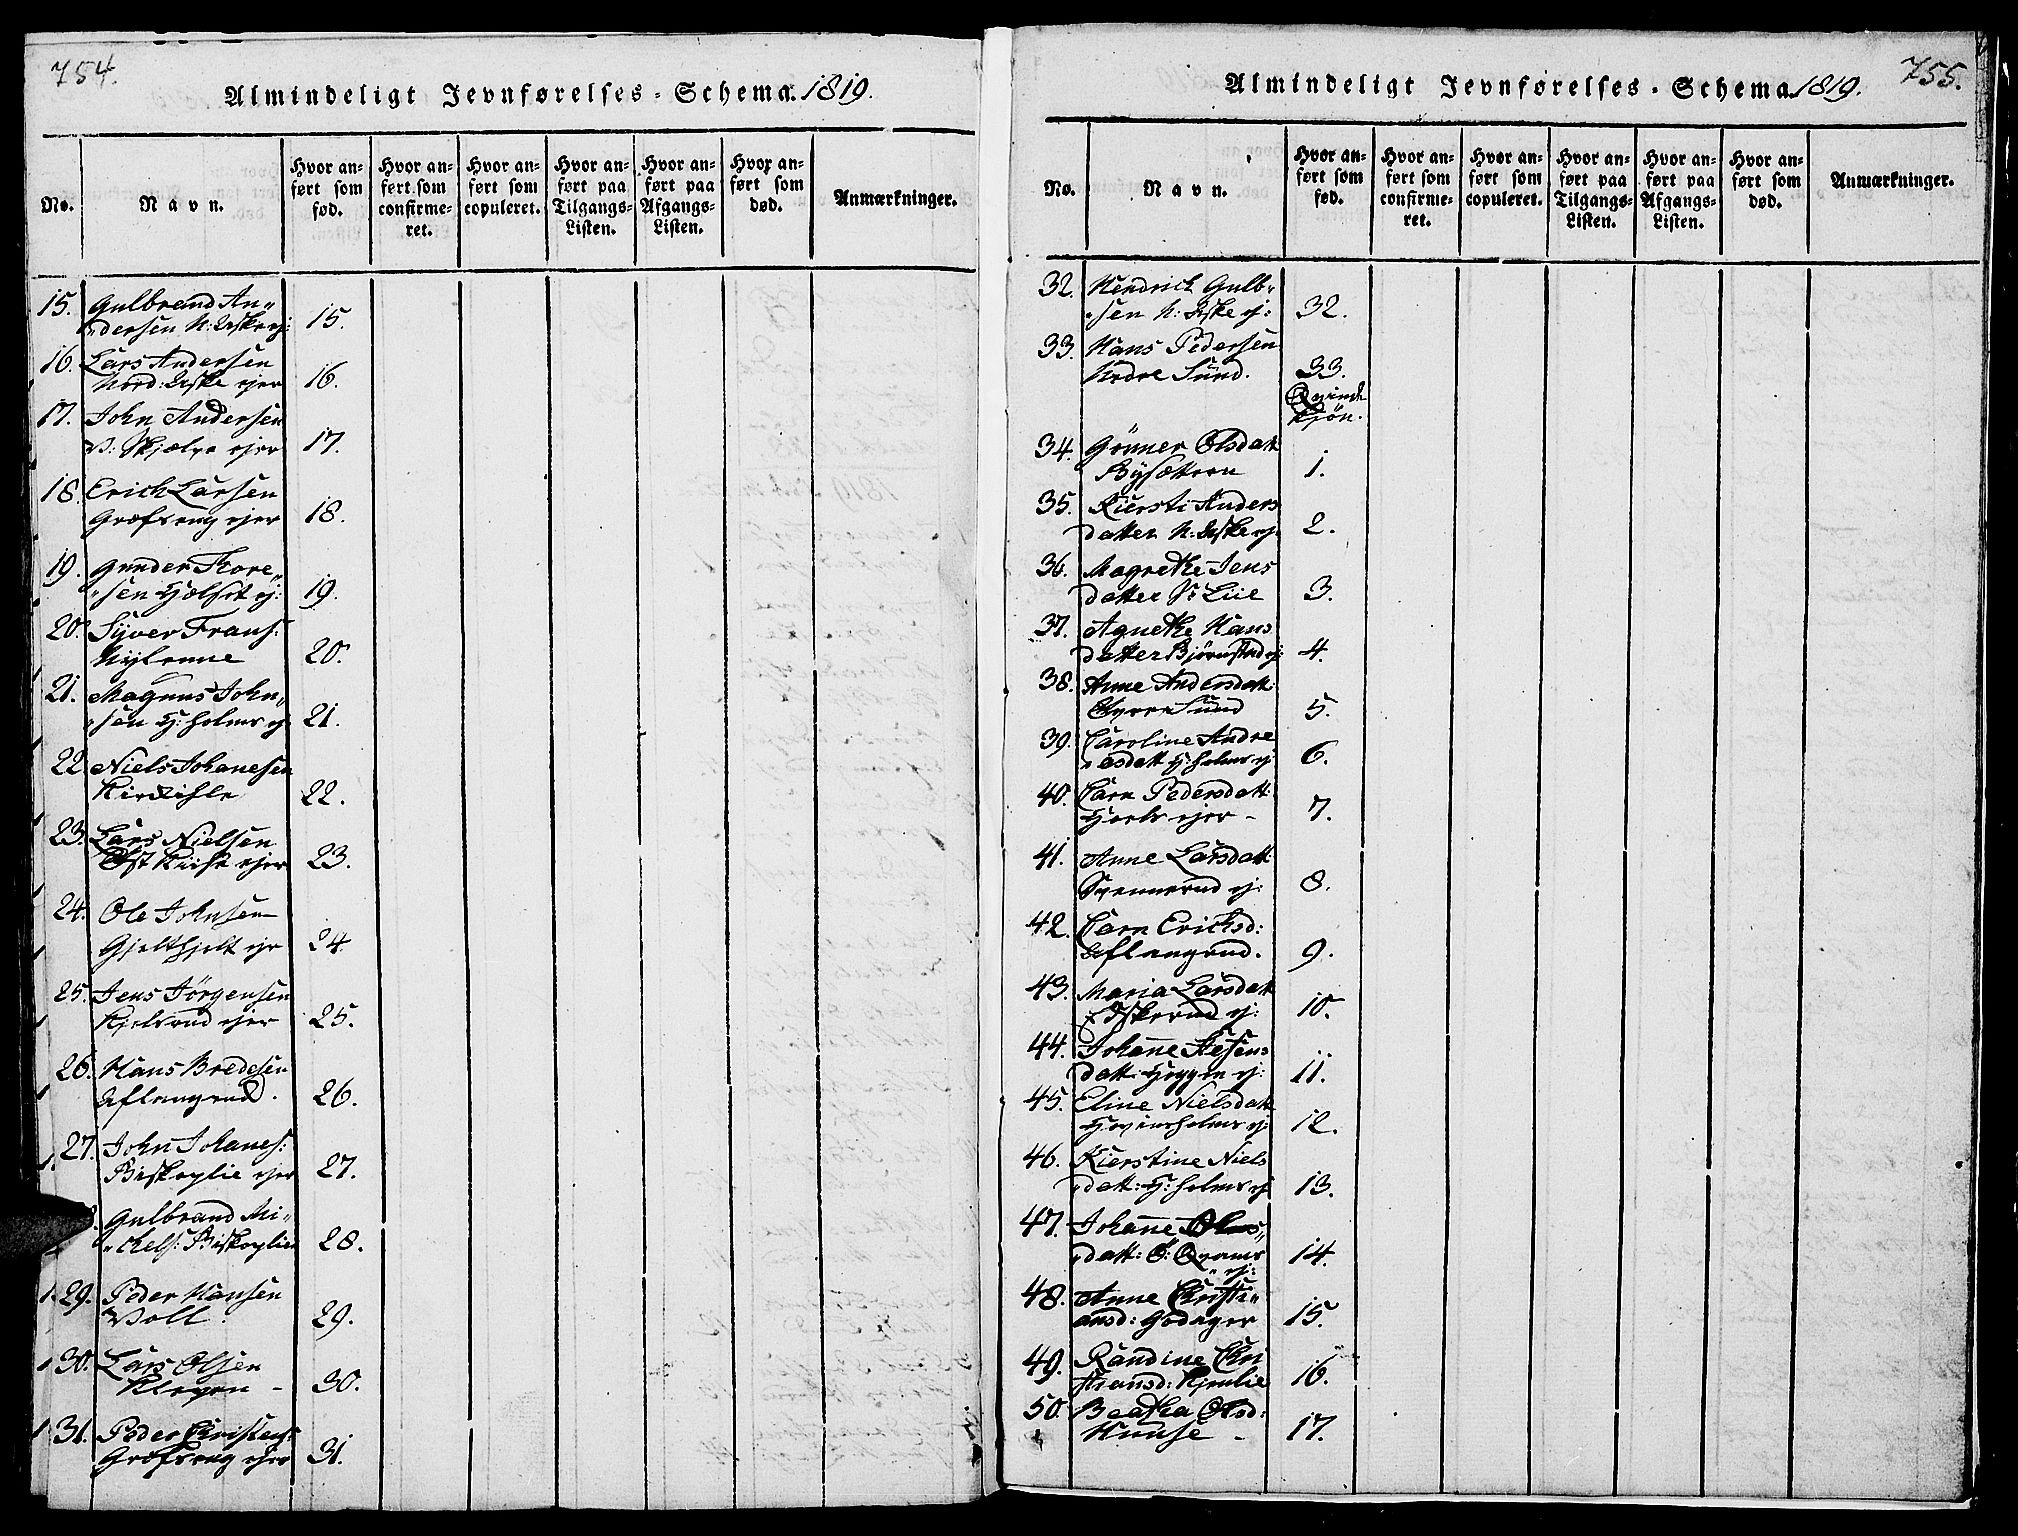 754.
Almindeligt Jevnførelses-Schema. 1819.
No.
Navn.
Hvor anført som fød.
Hvor anført som confirmeret.
Hvor anført som copuleret.
Hvor anført paa Tilgangs-Listen.
Hvor anført paa Afgangs-Listen.
Hvor anført som død.
Anmærkninger.
15. Gulbrand An„
„dersen N: Aske ej: 15.
16. Lars Andersen
Nord: Aske ejer 16.
17. John Andersen
V: Skjælve ejer 17.
18. Erich Larsen
Græfseng ejer 18.
19. Gunder Tore„
„sen Hjelset ej: 19.
20. Syver Frans:
20.
21. Magnus John„
„sen H: holms ej 21.
22. Niels Johanesen
22.
23. Lars Nielsen
Øst Kiise ejer 23.
24. Ole Johnsen
24.
25. Jens Jörgensen
Kjelsrud ejer 25.
26. Hans Bredesen
Aflangrud. 26.
27. John Johanes:
Biskoplie ejer 27.
Gulbrand Mi„
„chels: Biskoplie 28.
29. Peder Hansen
Voll. 29.
30. Lars Olsen
Kleven - 30.
31. Peder Christens:
Græfseng ejer 31.
755.
Almindeligt Jevnførelses-Schema. 1819.
No.
Navn.
Hvor anført som fød.
Hvor anført som confirmeret.
Hvor anført som copuleret.
Hvor anført paa Tilgangs-Listen.
Hvor anført paa Afgangs-Listen.
Hvor anført som død.
Anmærkninger.
32. Hendrich Gulb„
„sen N: Aske ej: 32.
33. Hans Pedersen
Nedre Sund. 33.
Qvinde
kjön.
34. Gönner Olsdatt
Bysætteren 1.
35. Kiersti Anders
datter N: Aske ej. 2.
36. Magrethe Jens
datter Liie 3.
37. Agnethe Hans
datter Björnstad ej: 4.
38. Anne Andersdatt:
Øvre Sund 5.
39. Caroline Andre
„asdatt H: holms ej 6.
40. Carn Pedersdatt:
ejer - 7.
41. Anne Larsdatt
Svennerud ej: 8.
42. Carn Ericksd:
Aflangrud. 9.
43. Maria Larsdatt
ej: 10.
44. Johanne
datt: ej: 11.
45. Eline Nielsdatt
Hovinsholms ej: 12.
46. Kierstine Niels
„datt: H: holms ej 13.
47. Johanne Olens„
„datt: Ö: Qvams
„ ej: 14.
48. Anne Christi„
ansd: Godager 15.
49. Randine Chri
stiansd: Kjenlie 16.
50. Beatha Olsd:
- 17.